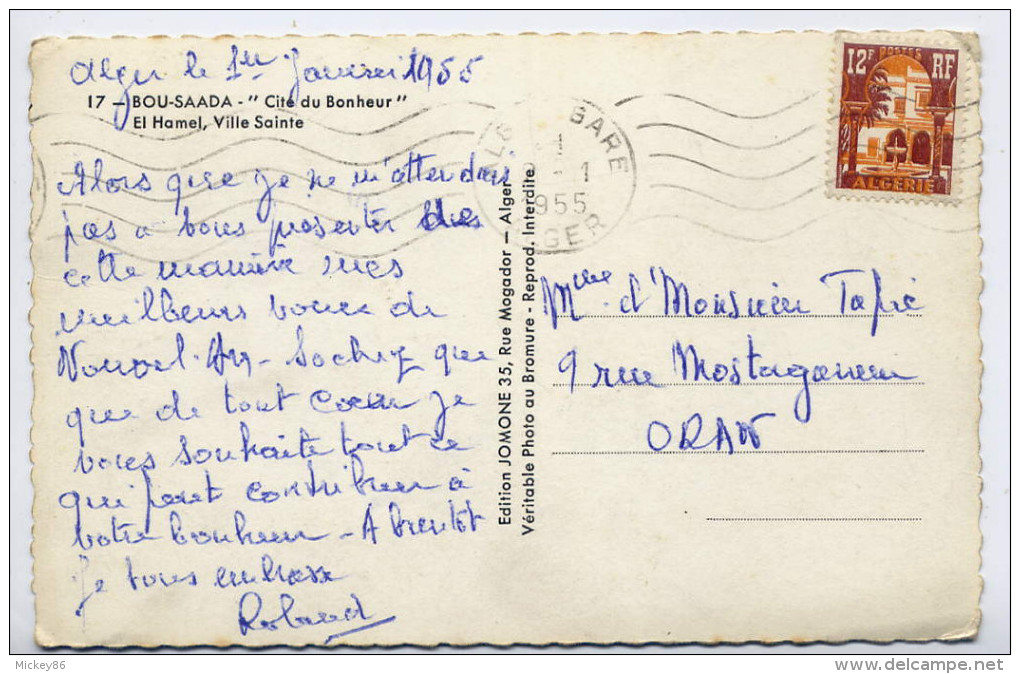 Alger le 1er Janvier 1955
17 — BOU-SAADA - " Cité du Bonheur "
El Hamel, Ville Sainte
Alors que je ne m'attendais
pas a vous presenter de
cette manière mes
meilleurs voeux de
Nouvel-An - Sachez que
que de tout coeur je
vous souhaite tout ce
qui peut contribuer à
votre bonheur - A bientôt
Je vous embrasse
Roland
Edition JOMONE 35, Rue Mogador — Alger
Véritable Photo au Bromure - Reprod. Interdite
12F POSTES RF
ALGÉRIE
ALGER GARE
1955
ALGER
Mme et Monsieur Tapié
9 rue Mostaganem
ORAN
Mickey86
www.delcampe.net